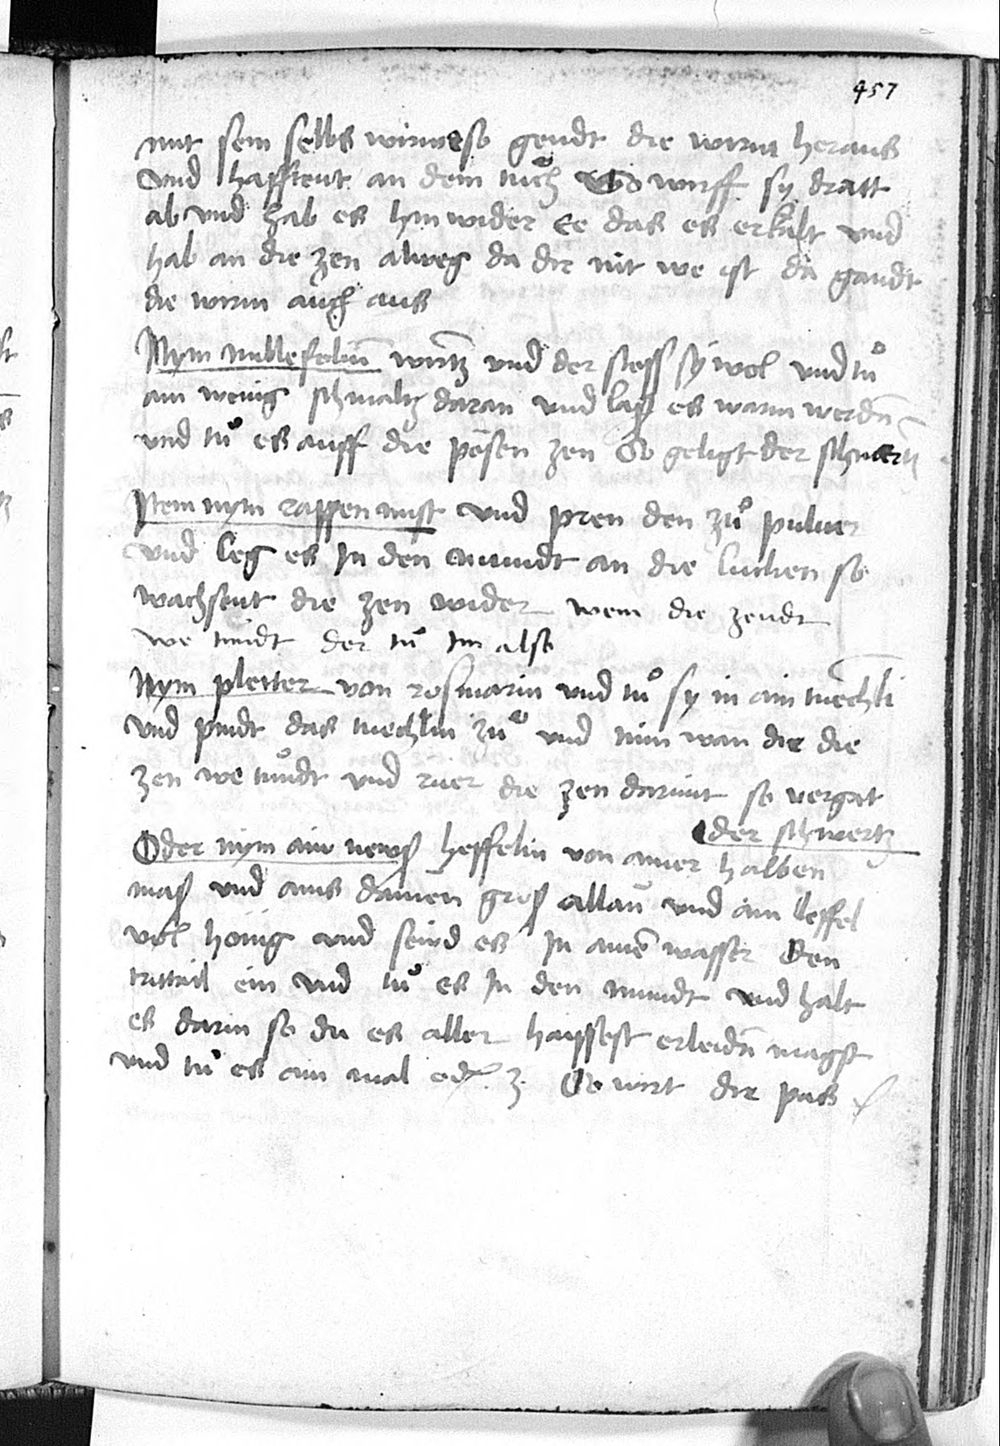 457
mit sein selbs wirm so gendt die wirm heraus
vnd hafftent an dem tuͦch So wirff sy dratt
ab vnd hab es hin wider Ee das es erkalt vnd
hab an die zen alweg da dir nit we ist da gandt
die wirm auch aus
Nym millefolium wurtz vnd der stoss sy wol vnd tuͦ
ain wenig schmaltz daran vnd lass es warm werdn
vnd tuͦ es auff die pesen zen So geligt der schmertz
Item nym rappen mist vnd pren den zuͦ puluer
vnd leg es in den mundt an die lucken so
wachsent die zen wider wem die zendt
we tuͦndt der tuͦ im also
Nym pletter von rosmarin vnd tuͦ sy in ain tuechli
vnd pindt das tuechlin zuͦ vnd nim wan dir die
zen we tuͦndt vnd ruer die zen darmit so vergat
der schmertz
Oder nym ain news heffelin von ainer halben
mass vnd ains daumen gros allaun vnd ain leffel
vol honig vnd seud es in aine wasser Den
trittail ein vnd tuͦ es in den mundt vnd halt
es darin so du es aller haissest erleidn magst
vnd tuͦ es ain mal od 3 So wirt dir pas